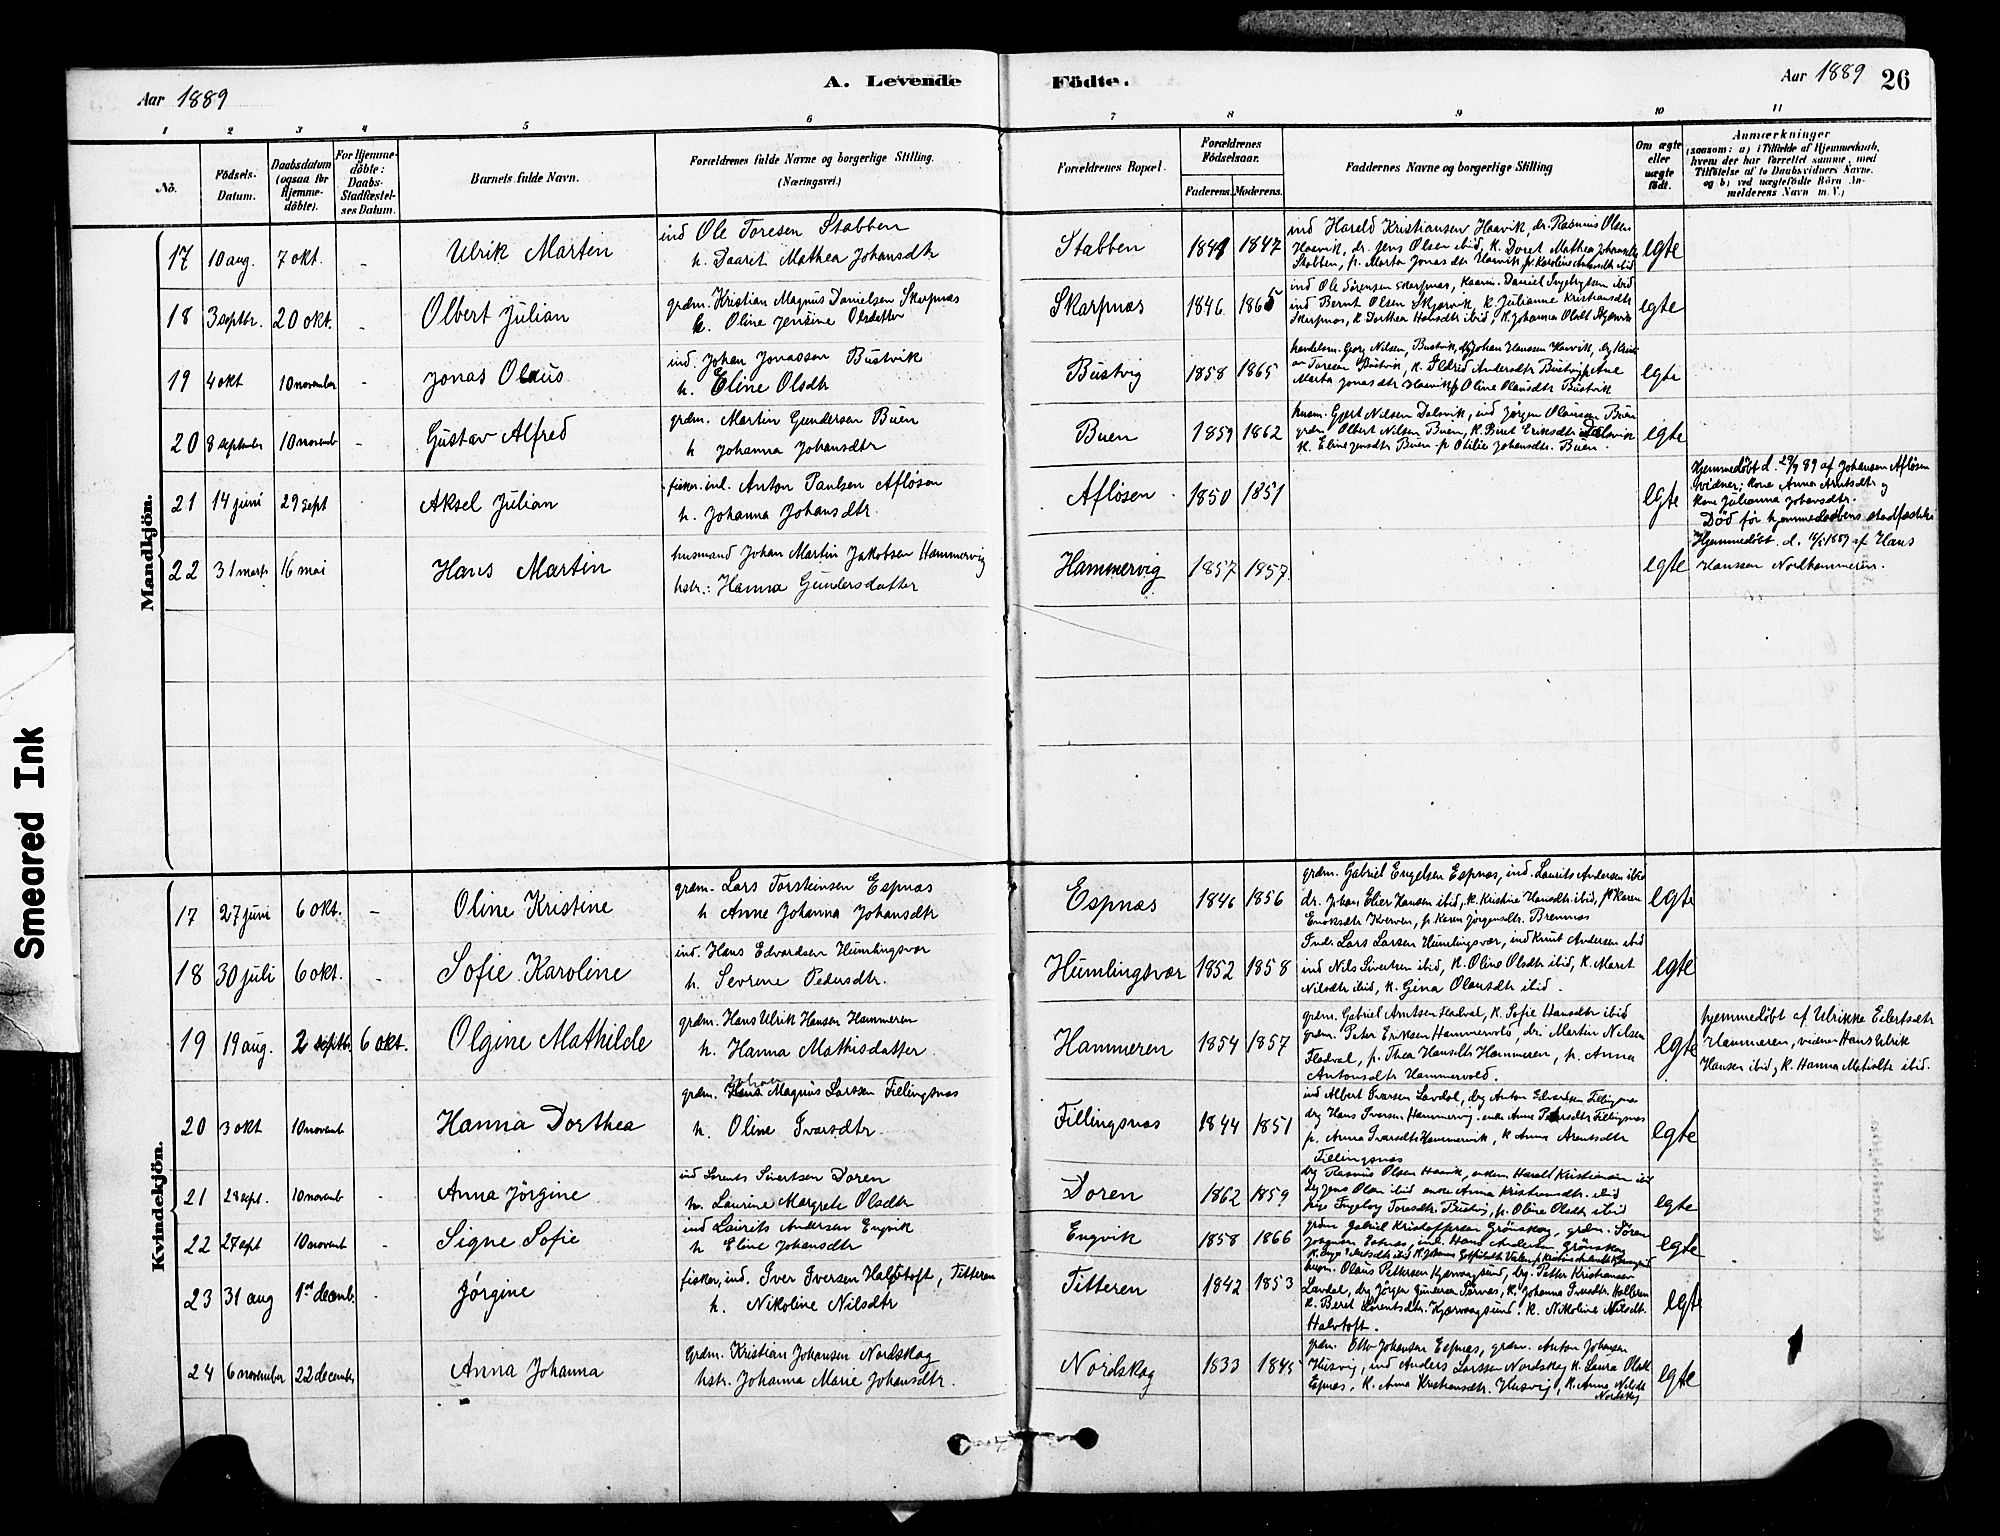 Smeared Ink
Aar 1889
A. Levende
Födte.
Aar 1889
26
1 2 3 4 5 6 7 8 9 10 11
No.
Födsels-
Datum.
Daabsdatum
(ogsaa for
Hjemme-
döbte).
For Hjemme-
döbte:
Daabs-
Stadfæstel-
ses Datum.
Barnets fulde Navn.
Forældrenes fulde Navne og borgerlige Stilling.
(Næringsvei.)
Forældrenes Bopæl.
Forældrenes
Födselsaar.
Faderens.
Moderens.
Faddernes Navne og borgerlige Stilling
Om ægte
eller
uægte
födt.
Anmærkninger
(saasom: a) i Tilfælde af Hjemmedaab,
hvem der har forrettet samme, med
Tilföielse af to Daabsvidners Navne,
og b) ved uægtefödte Börn An-
melderens Navn m. V.)
Mandkjön.
17 10 aug. 7 okt. - Ulrik Martin
ind Ole Toresen Stabben
h. Daaret Mathea Johansdtr
Stabben 1847
ind Harold Kristiansen Haavik, dr. Rasmus Olsen
Haavik, dr. Jens Olsen ibid, k. Doret Mathea Johansdtr
Stabben, p. Marta Jonasdtr Haavik
egte
18 3 septbr. 20 okt. - Olbert Julian
grdm. Kristian Magnus Danielsen Skarpnæs
h. Oline Jensine Olsdatter
Skarpnæs 1846 1865
ind Ole Sörensen Skarpnæs, Daniel Ingbrigtsen ibid
ind Bernt Olsen Skjærvik, k. Julianne Kristiansdtr
Skarpnæs, k. Dorthea Hansdtr ibid, k. Johanna Olsdt
egte
19 4 okt 10 november - Jonas Olaus
ind. Johan Jonassen Bustvik
h. Eline Olsdtr
Bustvig 1858 1865
handelsm. Georg Nilsen, Bustvik, Johan Hanssen Haavik,
Toresen Bustvik, k. Andersdtr Bustvig, Ane
Marta Jonasdtr Haavik, Oline Olausdtr Bustvik
egte
20 8 september 10 novemb - Gustav Alfred
grdm. Martin Gundersen Buen
h Johanna Johansdtr
Buen 1859 1862
husm. Gjert Nilsen Dalsvik, ind Jörgen Olaussen Buen
grdm Olbert Nilsen Buen, k. Beret Eriksdtr Dalsvik
k. Eline Jensdtr Buen p. Otilie Johansdtr. Buen.
egte
21 14 juni 29 sept Aksel Julian
fisker. ind. Anton Paulsen Aflösen
h. Johanna Johansdtr.
Aflösen 1850 1851
egte
Hjemmedöbt d. 89 af Johansen Aflösen
vidner; kone Anna Arntsdtr og
kone Julianna Johansdtr.
Död för hjemmedaabens stadfæstelse
22 31 marts 16 mai Hans Martin
husmand Johan Martin Jakobsen Hammervig
hstr.: Hanna Gundersdatter
Hammervig 1857 1857.
egte
Hjemmedöbt. d. 1889 af Hans
Hanssen Nordhammeren.
Kvindekjön.
17 27 juni 6 okt. - Oline Kristine
grdm. Lars Torsteinsen Espnæs
h Anne Johanna Johansdtr
Espnæs 1846 1856
grdm. Gabriel Engelsen Espnæs, ind. Laurits Andersen ibid
dr. Johan Elier Hansen ibid, k. Kristine Hansdtr ibid, Karen
Enoksdtr Kverven, p. Karen Jörgensdtr. Bremnæs
egte
18 30 juli 6 okt. - Sofie Karoline
ind. Hans Edvardsen Humlingsvær
h. Sevrene Pedersdtr.
Humlingsvær 1852 1858
Lars Larsen Humlingsvær, ind Knut Andersen ibid
ind Nils Sivertsen ibid, k. Oline Olsdtr ibid, k. Maret
Nilsdtr ibid, k. Gina Olausdtr ibid.
egte
19 19 aug. 2 septbr. 6 okt. Olgine Mathilde
grdm. Hans Ulrik Hansen Hammeren
h. Hanna Mathisdatter
Hammeren 1854 1857
grdm. Gabriel Arntsen Fladval, k. Sofie Hansdtr ibid
grdm. Peter Eriksen Hammervold, dr. Martin Nilsen
Fladval, p. Thea Hansdtr Hammeren, p. Anna
Antonsdtr Hammervold.
egte
hjemmedöbt af Ulrikke Eilertsdtr
Hammeren, vidner Hans Ulrik
Hansen ibid, k. Hanna Mathisdtr ibid.
20 3 okt 10 novemb Hanna Dorthea
Johan
grdm. Hans Magnus Larsen Fillingsnæs
h. Oline Ivarsdtr.
Fillingsnæs 1844 1851
ind Albert Ivarsen Lavdal, drg Anton Edvardsen Fillingsnæs
drg Hans Iversen Hammervig, enke Anne Fillingsnæs
p. Anna Ivarsdtr Hammervik, k Anna Arentsdtr
Fillingsnæs
egte
21 28 sept. 10 novemb - Anna Jörgine
ind Lorents Sivertsen Doren
h. Laurine Margrete Olsdtr
Doren 1862 1859
drg Rasmus Olsen Haavik, Harald Kristiansen ibid
drg Jens Olsen ibid enke Anna Kristiansdtr. ibid
pige Ingeborg Toresdtr. Bustvig, p. Oline Olsdtr ibid
egte
22 27 sept 10 novemb - Signe Sofie
ind Laurits Andersen Engvik
h Eline Johansdtr
Engvik 1858 1866
grdm Gabriel Kristoffersen Grönskag, grdm. Sören
Johansen Espnæs, ind. Hans Andersen Grönskag
egte
23 31 aug 1st decemb. - Jörgine
fisker, ind. Iver Iversen Halvtoft, Titteren
h. Nikoline Nilsdtr
Titteren 1842 1853
husm. Olaus Pettersen Kjærvaagsund, drg. Petter Kristiansen
Lavdal, drg Jörgen Gundersen k. Johanna Ivarsdtr.
k. Beret Lorentsdtr. Kjærvaagsund. k. Nikoline Nilsdtr
Halvtoft.
egte
24 6 november 22 december Anna Johanna
Grdm. Kristian Johansen Nordskag
hstr. Johanna Marie Johansdtr.
Nordskag 1833 1845
grdm. Otto Johansen Espnæs, grdm. Anton Johansen
Husvig, ind Anders Larssen Nordskag k. Laura Olsdt
Espnæs, k. Anna Kristiansdtr. Husvig, k. Anna Nilsdtr
Nordskag
egte